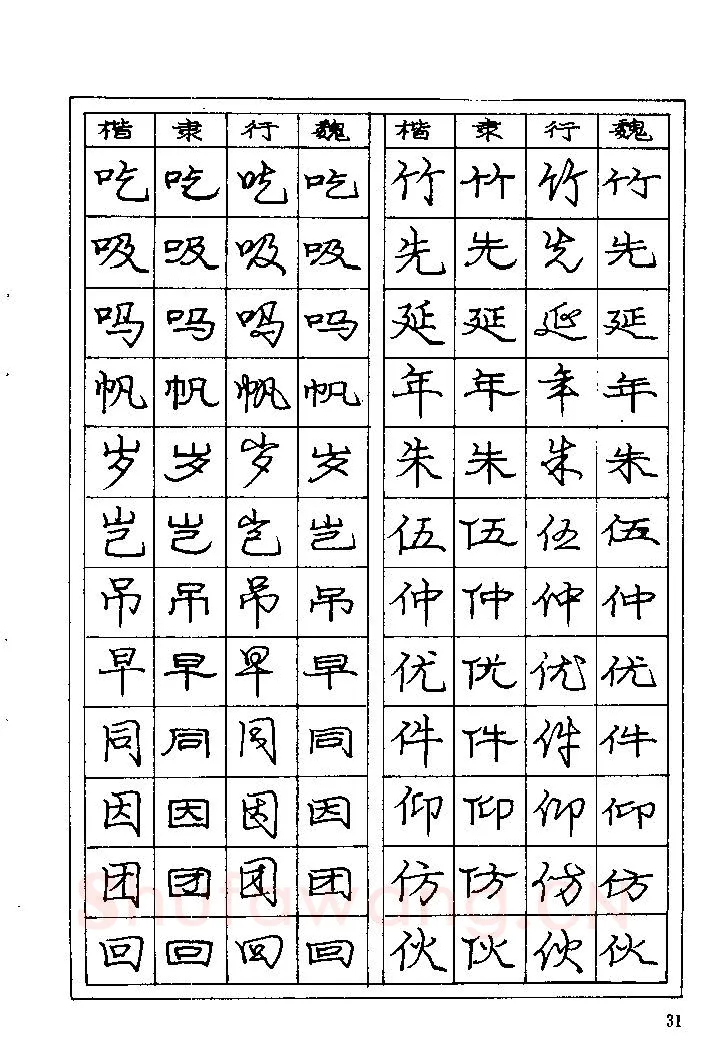 楷 隶 行 魏 楷 隶 行 魏
吃 吃 吃 吃 竹 竹 竹 竹
吸 吸 吸 吸 先 先 先 先
吗 吗 吗 吗 延 延 延 延
帆 帆 帆 帆 年 年 年 年
岁 岁 岁 岁 朱 朱 朱 朱
岂 岂 岂 岂 伍 伍 伍 伍
吊 吊 吊 吊 仲 仲 仲 仲
早 早 早 早 优 优 优 优
同 同 同 同 件 件 件 件
因 因 因 因 仰 仰 仰 仰
团 团 团 团 仿 仿 仿 仿
回 回 回 回 伙 伙 伙 伙
Shufawang.CN
31